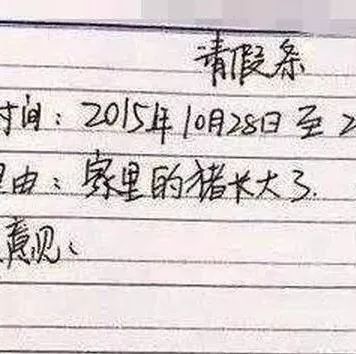 请假条
时间：2015年10月28日至2
理由：家里的猪长大了.
意见：